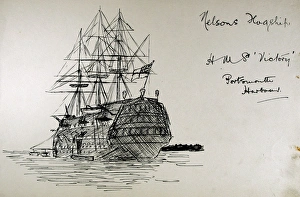 Nelsons Flagship
H M S "Victory"
Portsmouth
Harbour.